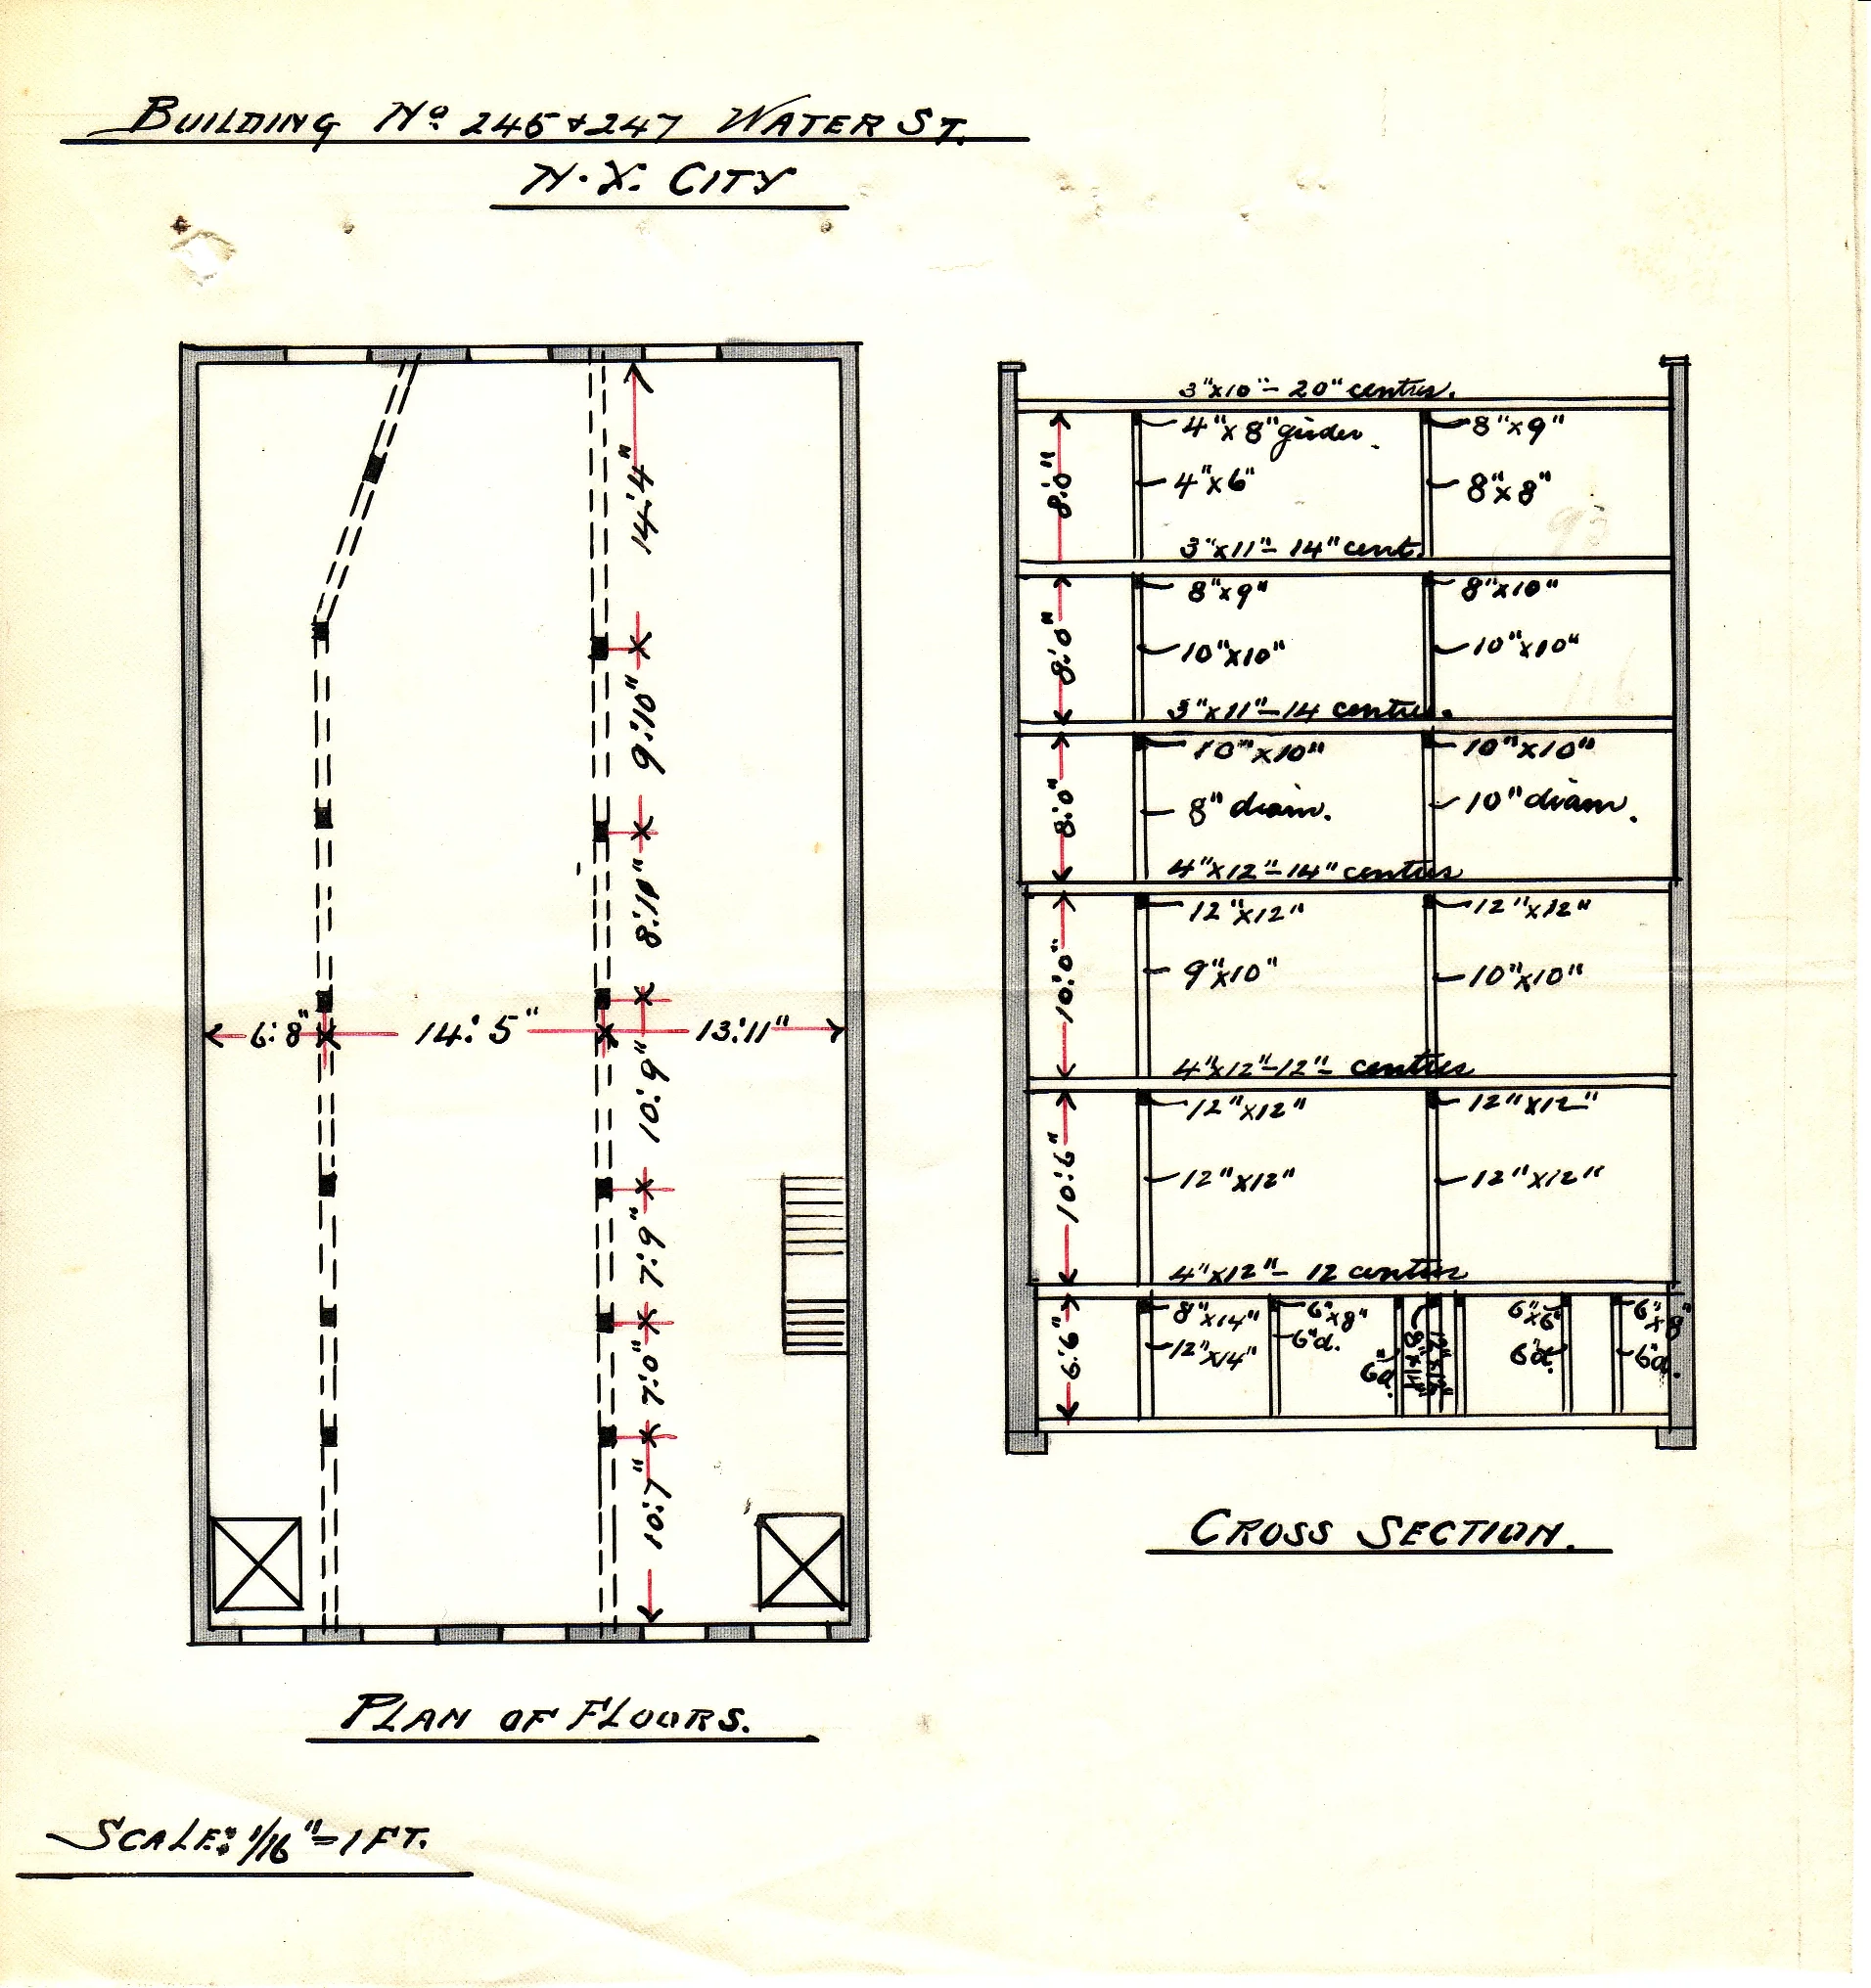 BUILDING Nº 245 & 247 WATER ST.
N.Y. CITY
14'.4"
9'.10"
8'.10"
6'.8" 14'.5" 13'.11"
10'.9"
7'.9"
7'.0"
10'.7"
PLAN OF FLOORS.
SCALE: 1/16" = 1 FT.
3"x10" - 20" centres.
8'.0"
4"x8" girder. 8"x9"
4"x6" 8"x8"
3"x11" - 14" cent.
8'.0"
8"x9" 8"x10"
10"x10" 10"x10"
3"x11" - 14 centres.
8'.0"
10"x10" 10"x10"
8" diam. 10" diam.
4"x12" - 14" centres
10'.0"
12"x12" 12"x12"
9"x10" 10"x10"
4"x12" - 12" - centres
10'.6"
12"x12" 12"x12"
12"x12" 12"x12"
4"x12" - 12 centres
6'.6"
8"x14" 6"x8" 8"x14" 12"x12" 6"x6" 6"x8"
12"x14" 6"d. 6"d. 6"d. 6"d.
CROSS SECTION.